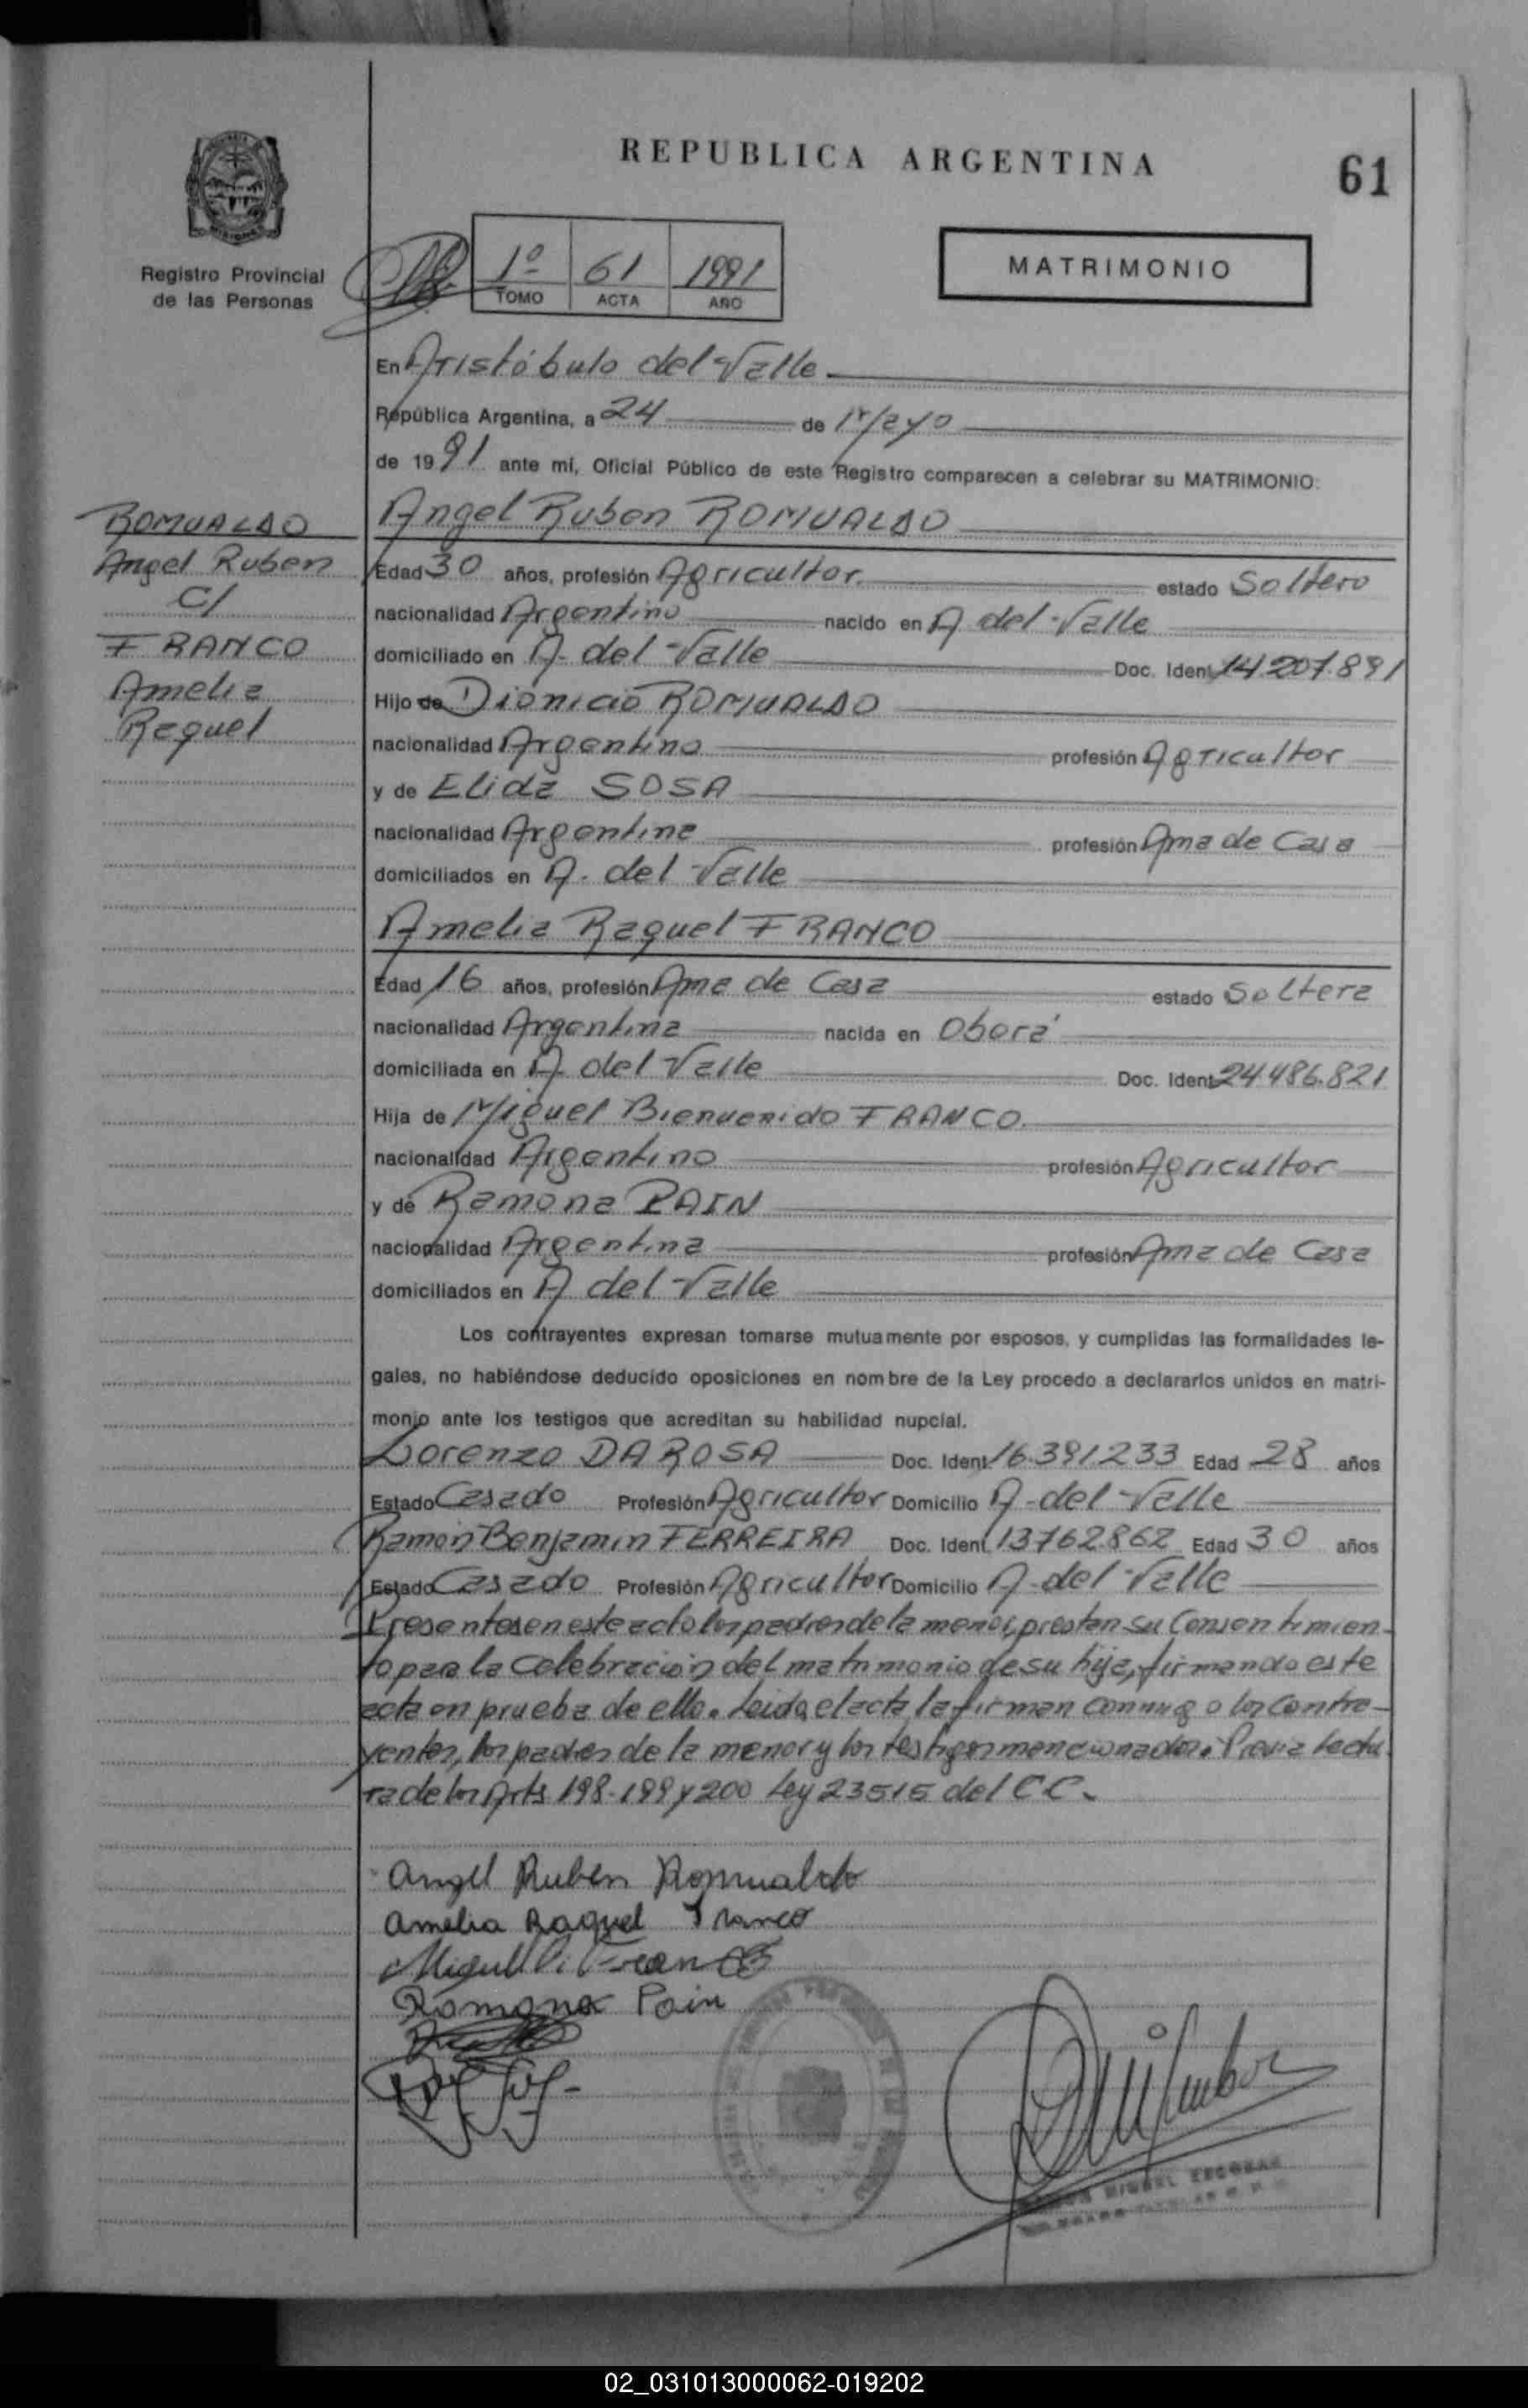 REPUBLICA ARGENTINA
61
Registro Provincial
de las Personas
1º 61 1991
TOMO ACTA AÑO
MATRIMONIO
En Aristóbulo del Valle
República Argentina, a 24 de Mayo
de 1991 ante mí, Oficial Público de este Registro comparecen a celebrar su MATRIMONIO:
ROMUALDO
Angel Ruben
C/
FRANCO
Amelia
Raquel
Angel Ruben ROMUALDO
Edad 30 años, profesión Agricultor. estado Soltero
nacionalidad Argentino nacido en A. del Valle
domiciliado en A. del Valle Doc. Ident 14.207.891
Hijo de Dionicio ROMUALDO
nacionalidad Argentino profesión Agricultor
y de Elida SOSA
nacionalidad Argentina profesión Ama de Casa
domiciliados en A. del Valle
Amelia Raquel FRANCO
Edad 16 años, profesión Ama de Casa estado Soltera
nacionalidad Argentina nacida en Oberá
domiciliada en A. del Valle Doc. Ident 24.486.821
Hija de Miguel Bienvenido FRANCO.
nacionalidad Argentino profesión Agricultor
y de Ramona PAIN
nacionalidad Argentina profesión Ama de Casa
domiciliados en A del Valle
Los contrayentes expresan tomarse mutuamente por esposos, y cumplidas las formalidades le-
gales, no habiéndose deducido oposiciones en nombre de la Ley procedo a declararlos unidos en matri-
monio ante los testigos que acreditan su habilidad nupcial.
Lorenzo DA ROSA Doc. Ident. 16.391.233 Edad 28 años
Estado Casado Profesión Agricultor Domicilio A. del Valle
Ramón Benjamin FERREIRA Doc. Ident. 13762.862 Edad 30 años
Estado Casado Profesión Agricultor Domicilio A. del Valle
Presentes en este acto los padres de la menor, prestan su Consentimien-
to para la Celebración del matrimonio de su hija, firmando este
acta en prueba de ello. Leida el acta la firman conmigo los Contra-
yentes, los padres de la menor y los testigos mencionados. Previa lectu
ra de los Arts 198-199 y 200 Ley 23515 del C C.
Angel Ruben Romualdo
Amelia Raquel Franco
Miguel B. Franco
Ramona Pain
MIGUEL ESCOBAR
02_031013000062-019202